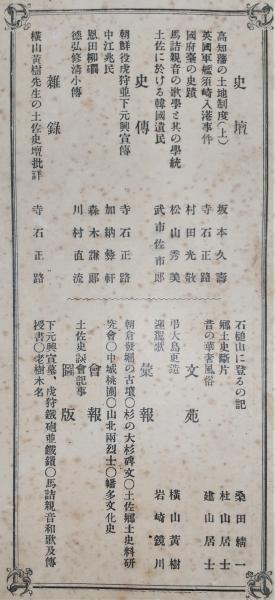 史壇
高知藩の土地制度(上) 坂本久壽
英國軍艦須崎入港事件 寺石正路
國府臺の史蹟 村田光敬
馬詰親音の歌學と其の學統 松山秀美
土佐に於ける韓國遺民 武市佐市郎
史傳
朝鮮役虎狩並下元興宣傳 寺石正路
中江兆民 加納軒
恩田柳磵 森木謙郎
德弘修淸小傳 川村直流
雜錄
橫山黃樹先生の土佐史壇批評 寺石正路
石槌山に登るの記 桑田耕一
鄕土史斷片 杜山居士
昔の華奢風俗 建山居士
文苑
弔大島更造 橫山黃樹
迎鸞歌 岩崎鏡川
彙報
朝倉發掘の古墳〇杉の大杉碑文〇土佐鄕土史料硏
究會〇中城桃園〇山北兩烈士〇幡多文化史
會報
土佐史談會記事
圖版
下元興宣墓、虎狩鐵砲並鐵鏃〇馬詰親音和歌及傳
授書〇老樹木名